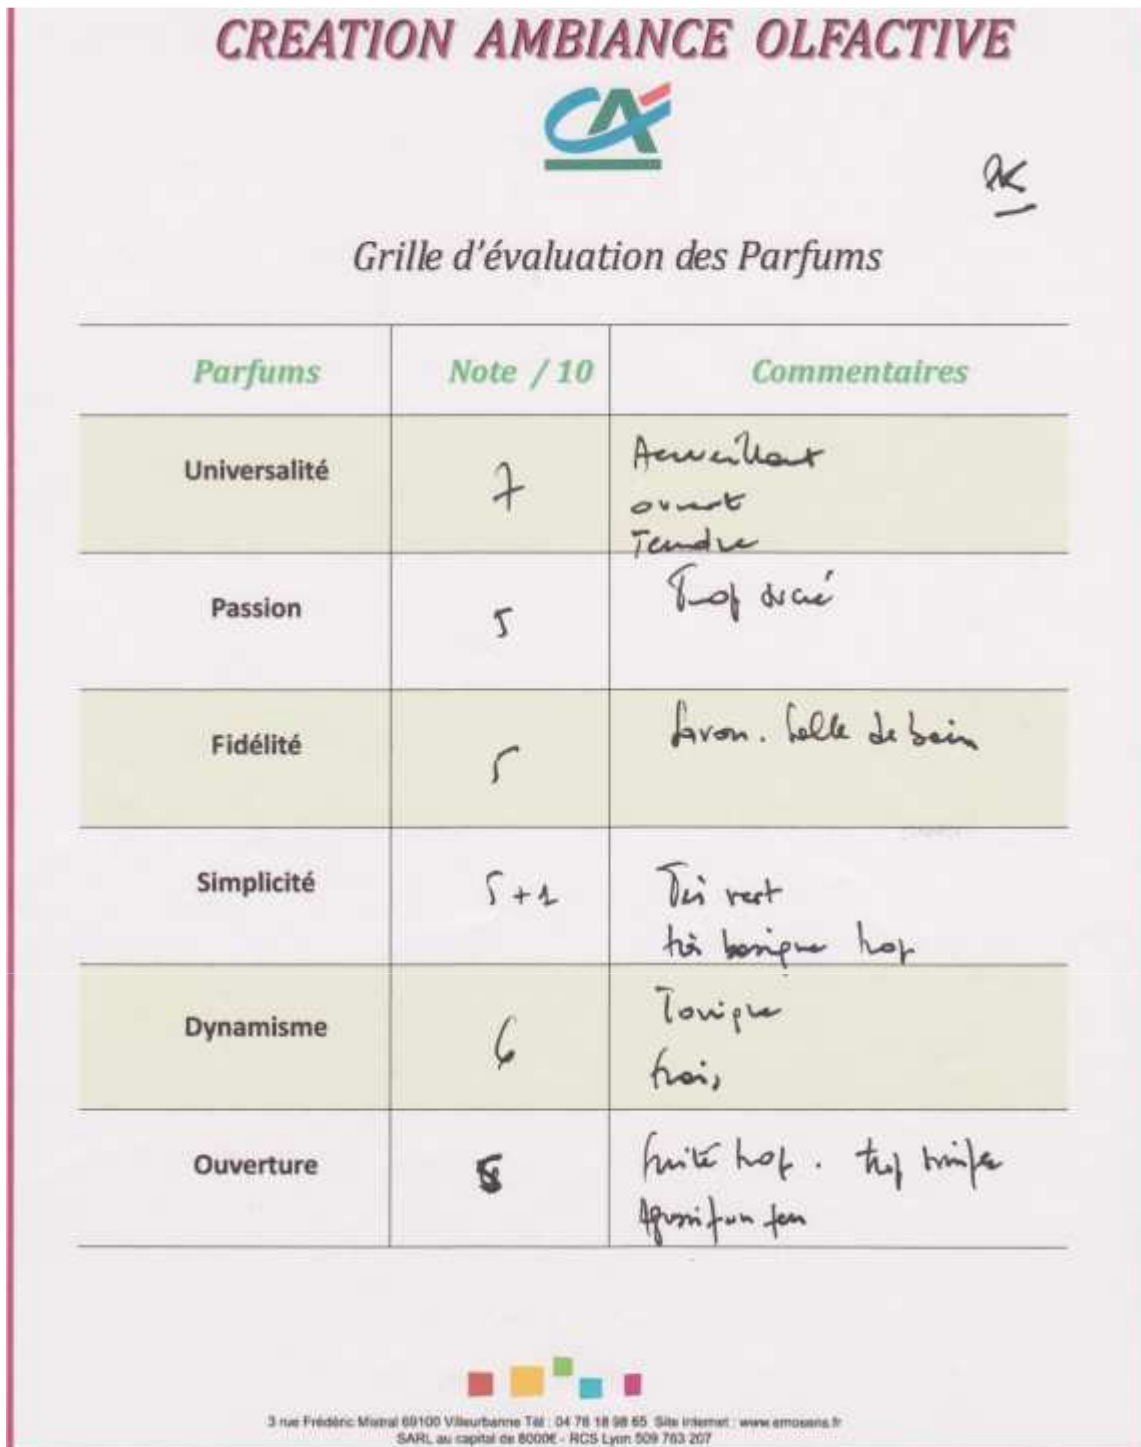 CREATION AMBIANCE OLFACTIVE
CA
Grille d'évaluation des Parfums
Parfums Note / 10 Commentaires
Universalité 7 Accueillant
ouvert
Tendre
Passion 5 Trop sucré
Fidélité 5 Savon. Salle de bain
Simplicité 5+1 Très vert
très basique trop
Dynamisme 6 Tonique
frais
Ouverture 5 fruité trop. trop
Agressif un peu
3 rue Frédéric Mistral 69100 Villeurbanne Tél : 04 78 18 98 65 Site internet : www.emosens.fr
SARL au capital de 8000€ - RCS Lyon 509 763 207